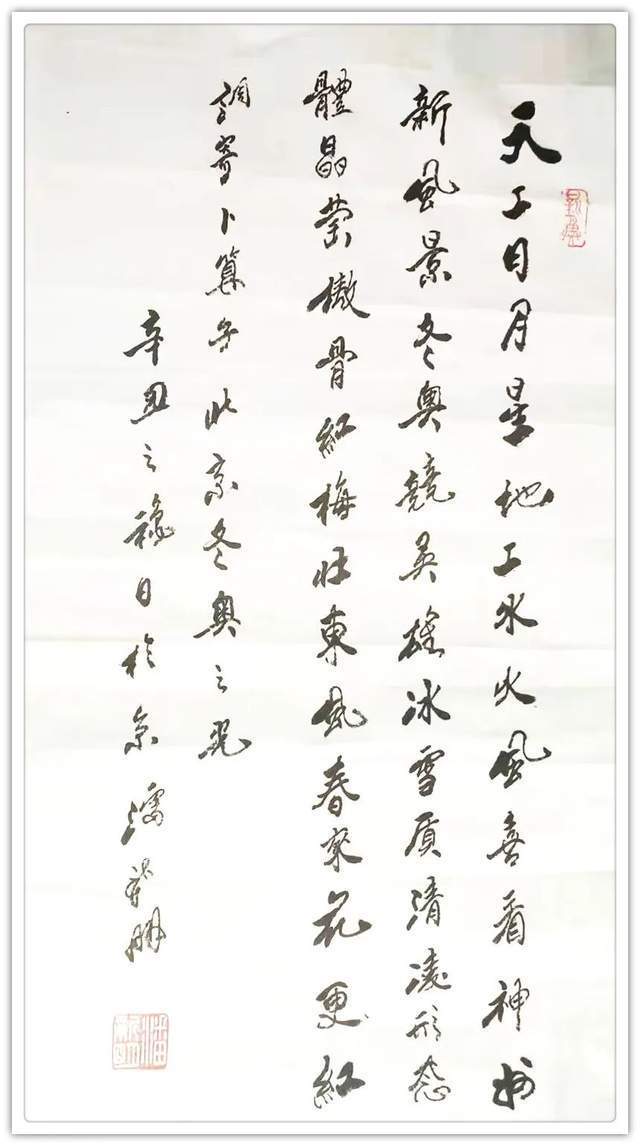 天工日月星地工水火風喜看神州
新風景冬奧競英雄冰雪質清凌形态
體晶莹傲骨紅梅壮東風春來花更紅
調寄卜算子北京冬奧之
辛丑之日於京潘